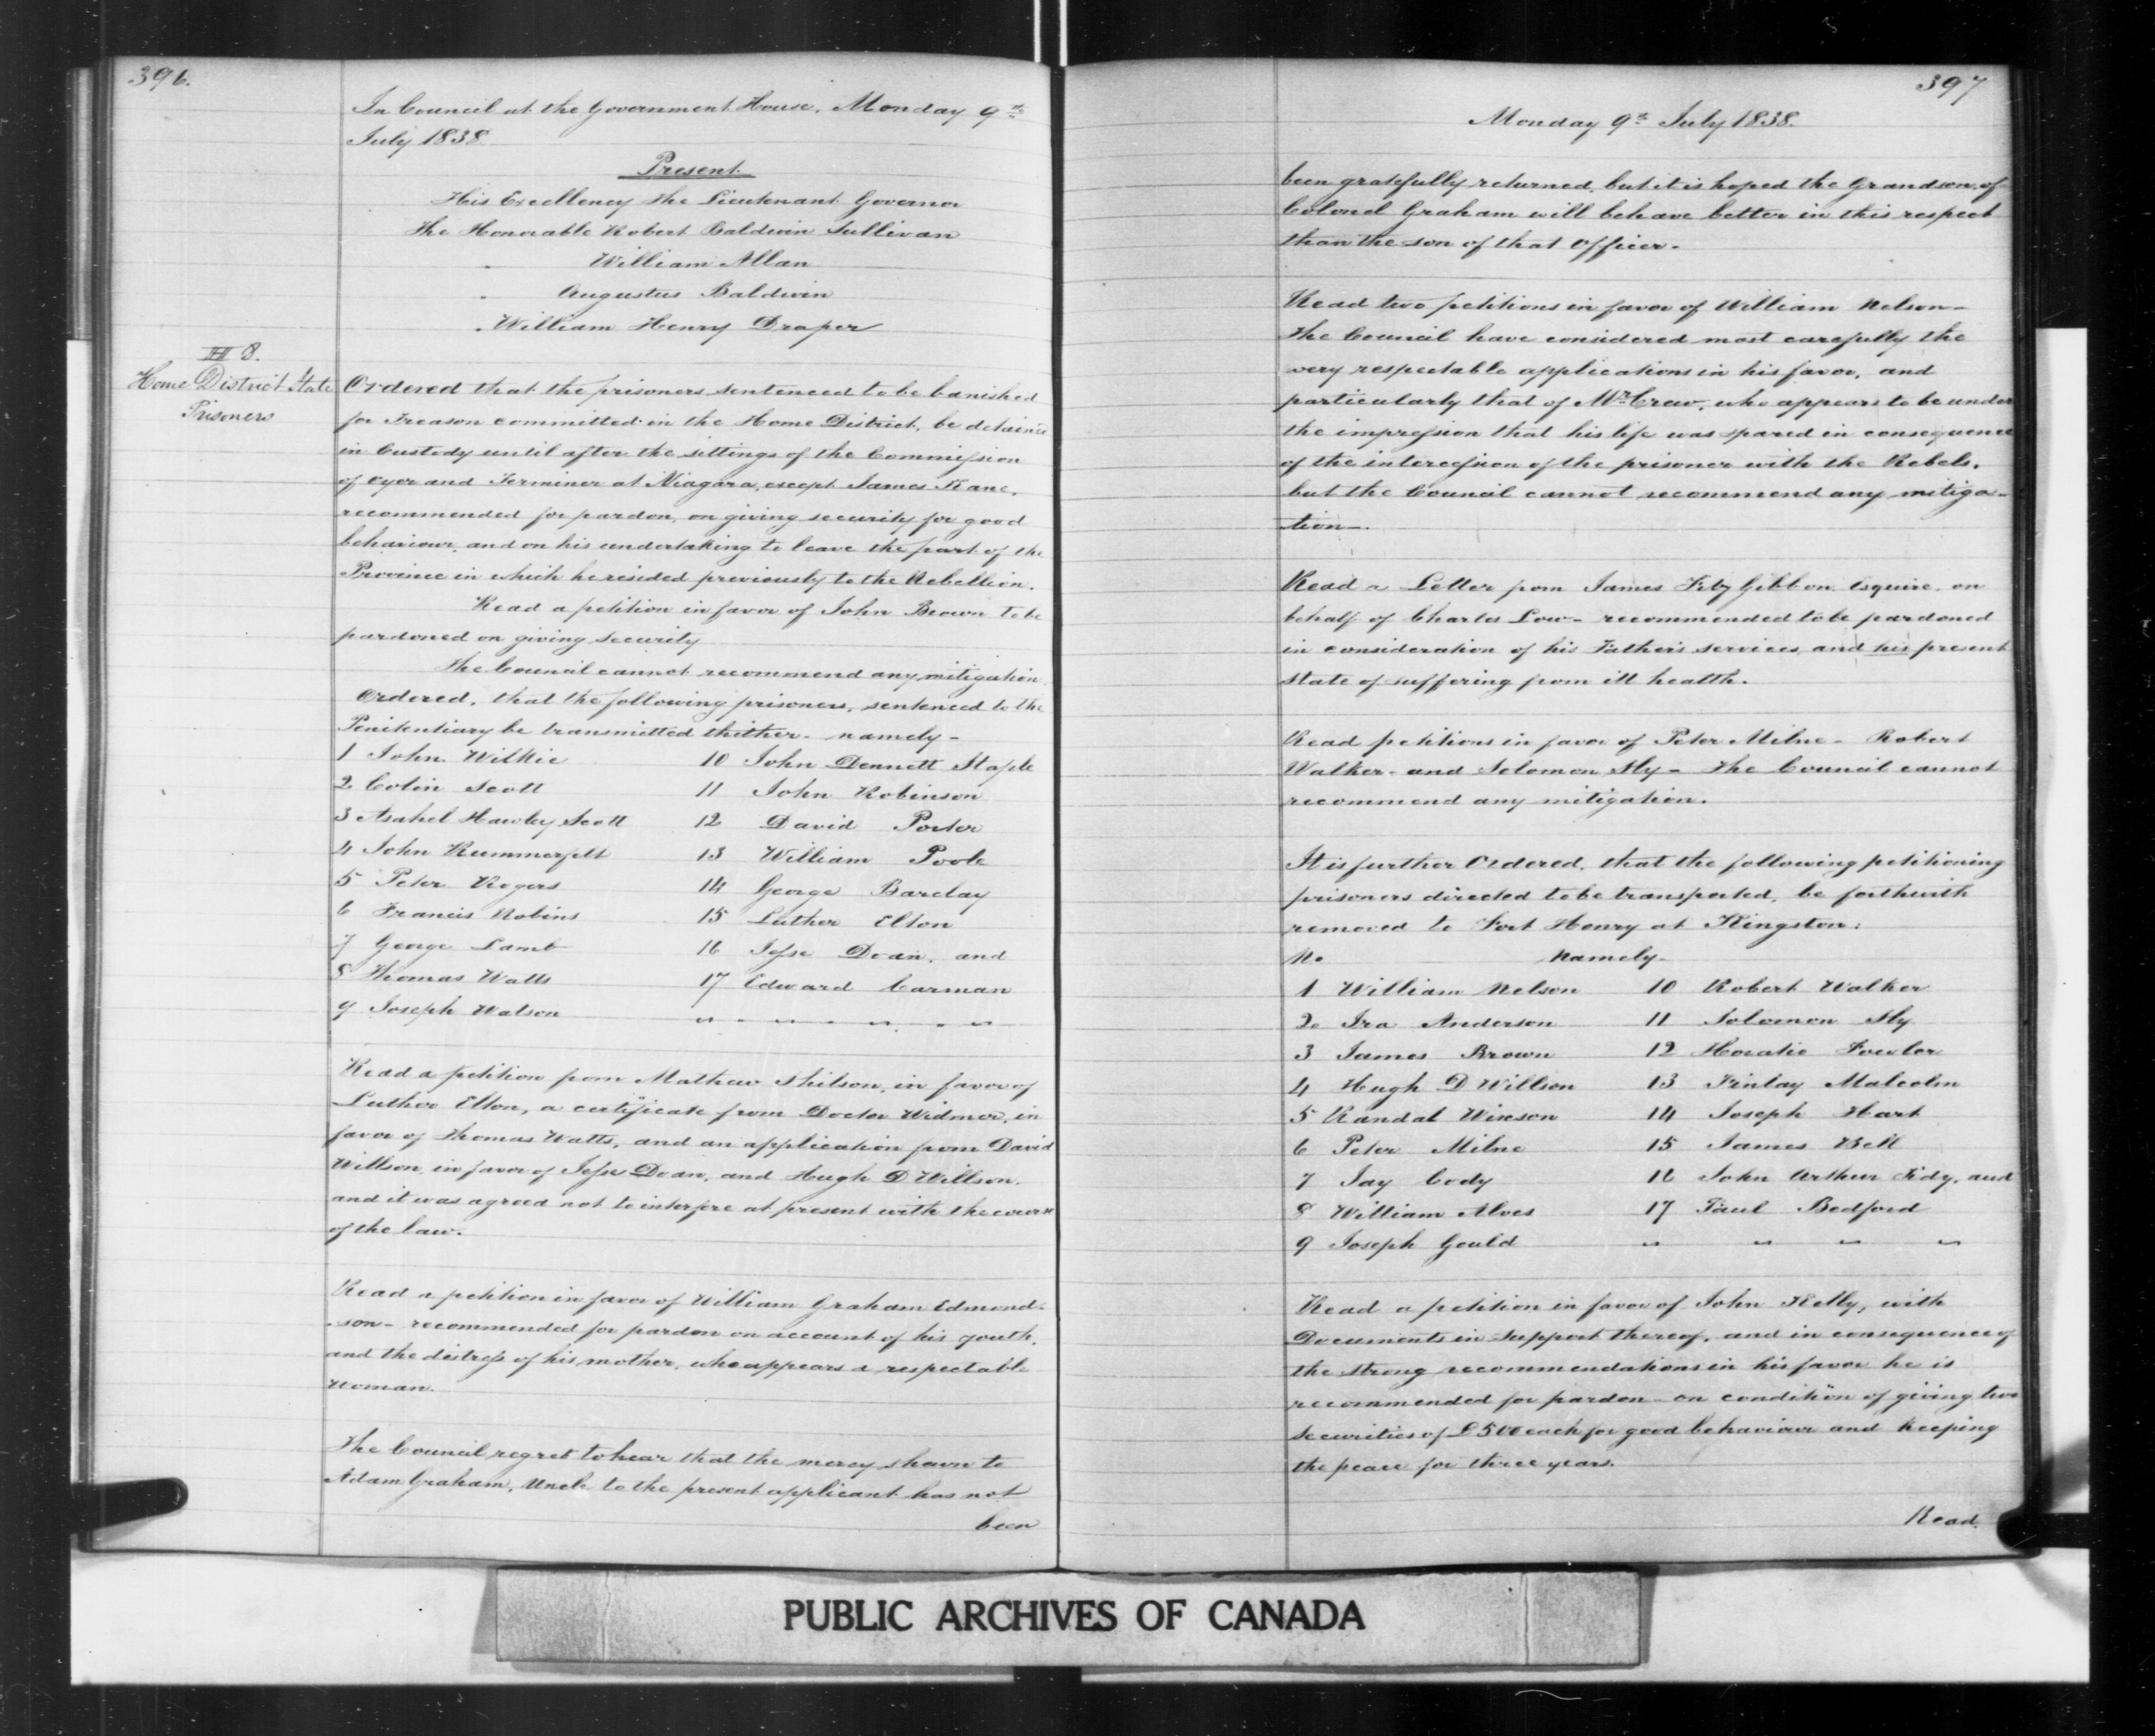 396.
In Council at the Government House, Monday 9th
July 1838.
Present
His Excellency the Lieutenant Governor
The Honorable Robert Baldwin Sullivan
" William Allan
" Augustus Baldwin
" William Henry Draper
8.
Home District State
Prisoners
Ordered that the prisoners sentenced to be banished
for Treason committed in the Home District, be detained
in Custody until after the sittings of the Commission
of Oyer and Terminer at Niagara, except James Kane,
recommended for pardon, on giving security for good
behaviour, and on his undertaking to leave the part of the
Province in which he resided previously to the Rebellion.
Read a petition in favor of John Brown to be
pardoned on giving security
The Council cannot recommend any mitigation
Ordered, that the following prisoners, sentenced to the
Penitentiary be transmitted thither - namely -
1 John Wilkie 10 John Dennett Staple
2 Colin Scott 11 John Robinson
3 Asahel Hawley Scott 12 David Porter
4 John Rummerfelt 13 William Poole
5 Peter Rogers 14 George Barclay
6 Francis Robins 15 Luther Elton
7 George Lamb 16 Jesse Doan, and
8 Thomas Watts 17 Edward Carman
9 Joseph Watson " " " "
Read a petition from Mathew Shilson, in favor of
Luther Elton, a certificate from Doctor Widmer, in
favor of Thomas Watts, and an application from David
Willson, in favor of Jesse Doan, and Hugh D Willson.
and it was agreed not to interfere at present with the course
of the law.
Read a petition in favor of William Graham Edmond-
-son - recommended for pardon on account of his youth,
and the distress of his mother, who appears a respectable
woman.
The Council regret to hear that the mercy shewn to
Adam Graham, Uncle to the present applicant has not
been
397
Monday 9th July 1838.
been gratefully returned, but it is hoped the Grandson of
Colonel Graham will behave better in this respect
than the son of that Officer.
Read two petitions in favor of William Nelson -
The Council have considered most carefully the
very respectable applications in his favor, and
particularly that of Mr Crew, who appears to be under
the impression that his life was spared in consequence
of the intercession of the prisoner with the Rebels,
but the Council cannot recommend any mitiga-
-tion -.
Read a Letter from James FitzGibbon Esquire, on
behalf of Charles Low - recommended to be pardoned
in consideration of his Father's services, and his present
state of suffering from ill health.
Read petitions in favor of Peter Milne - Robert
Walker - and Solomon Sly - The Council cannot
recommend any mitigation.
It is further Ordered, that the following petitioning
prisoners directed to be transported, be forthwith
removed to Fort Henry at Kingston:
No Namely -
1 William Nelson 10 Robert Walker
2 Ira Anderson 11 Solomon Sly
3 James Brown 12 Horatio Fowler
4 Hugh D Willson 13 Finlay Malcolm
5 Randal Wixson 14 Joseph Hart
6 Peter Milne 15 James Bell
7 Jay Cody 16 John Arthur Tidy, and
8 William Alves 17 Paul Bedford
9 Joseph Gould " " " "
Read a petition in favor of John Kelly, with
Documents in support thereof, and in consequence of
the strong recommendations in his favor he is
recommended for pardon - on condition of giving two
securities of £500 each for good behaviour and keeping
the peace for three years.
Read
PUBLIC ARCHIVES OF CANADA